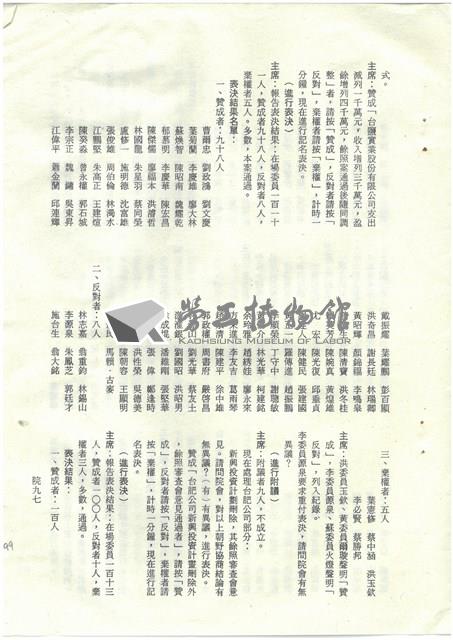 式。
主席：贊成「台鹽實業股份有限公司支出
減列一千萬元，收入增列三千萬元，盈
餘增列四千萬元，餘照案通過後隨同調
整」者，請按「贊成」，反對者請按「
反對」，棄權者請按「棄權」，計時一
分鐘，現在進行記名表決。
（進行表決）
主席：報告表決結果：在場委員一百一十
一人，贊成者九十八人，反對者八人，
棄權者五人。多數，本案通過。
表決結果名單：
一、贊成者：九十八人
曹爾忠 劉政鴻 劉文慶
葉菊蘭 李慶雄 廖大林
蘇煥智 陳昭南 魏耀乾
郁慕明 李慶華 陳宏昌
陳傑儒 廖福本 洪濬哲
林國龍 李星羽 蔡同榮
盧修一 施明德 沈富雄
張俊雄 周伯倫 林濁水
江鵬堅 朱高正 王建煊
陳癸淼 曾永權 郭石城
李宗正 魏鏞 吳東昇
江偉平 蕭金蘭 邱連輝
戴振耀 葉耀鵬 彭百顯
洪奇昌 謝長廷 林瑞卿
黃昭輝 顏錦福 李鳴泉
陳清寶 洪冬桂
陳婉真 黃煌雄
陳光復 邱垂貞
陳健民 張建國
羅傳進 趙振鵬
丁守中 謝聰敏
林光華 柯建銘
趙綉娃 廖永來
李友吉 葛雨琴
陳建平 徐中雄
周書府 嚴啓昌
劉光華 蔡友土
劉國昭 洪昭男
潘維剛 張堅華
張偉 鄭逢時
洪性榮 吳德美
陳朝容 王顯明
二、反對者：八人
林志嘉 翁重鈞 林錫山
李源泉 朱鳳芝 郭廷才
施台生 翁大銘
三、棄權者：五人
葉憲修 蔡中涵 洪玉欽
李必賢 蔡勝邦
主席：洪委員玉欽、黃委員爾璇聲明「贊
成」，李委員源泉、蘇委員火燈聲明「
反對」，列入紀錄。
李委員源泉要求重付表決，請問院會有無
異議？
（進行附議）
主席：附議者九人，不成立。
現在處理台肥公司部分：
新興投資計劃刪除，其餘照審查會意
見。請問院會，對以上朝野協商結論有
無異議？（有）有異議，進行表決。
贊成「台肥公司新興投資計畫刪除外
，餘照審查會意見通過者」，請按「贊
成」，反對者請按「反對」，棄權者請
按「棄權」，計時一分鐘，現在進行記
名表決。
（進行表決）
主席：報告表決結果：在場委員一百十三
人，贊成者一〇〇人，反對者十人，棄
權者三人，多數，通過。
表決結果：
一、贊成者：一百人
院九七
99
勞工博物館
KAOHSIUNG MUSEUM OF LABOR